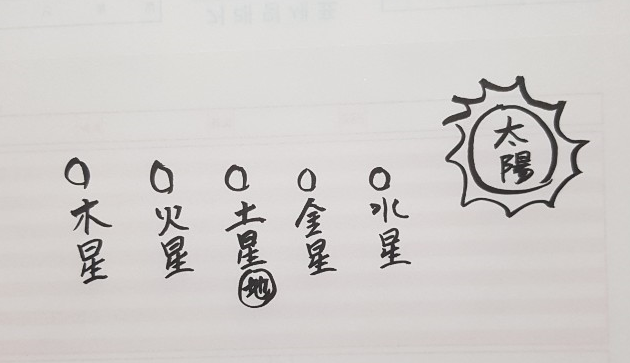 太陽
水星
金星
土星
地
火星
木星